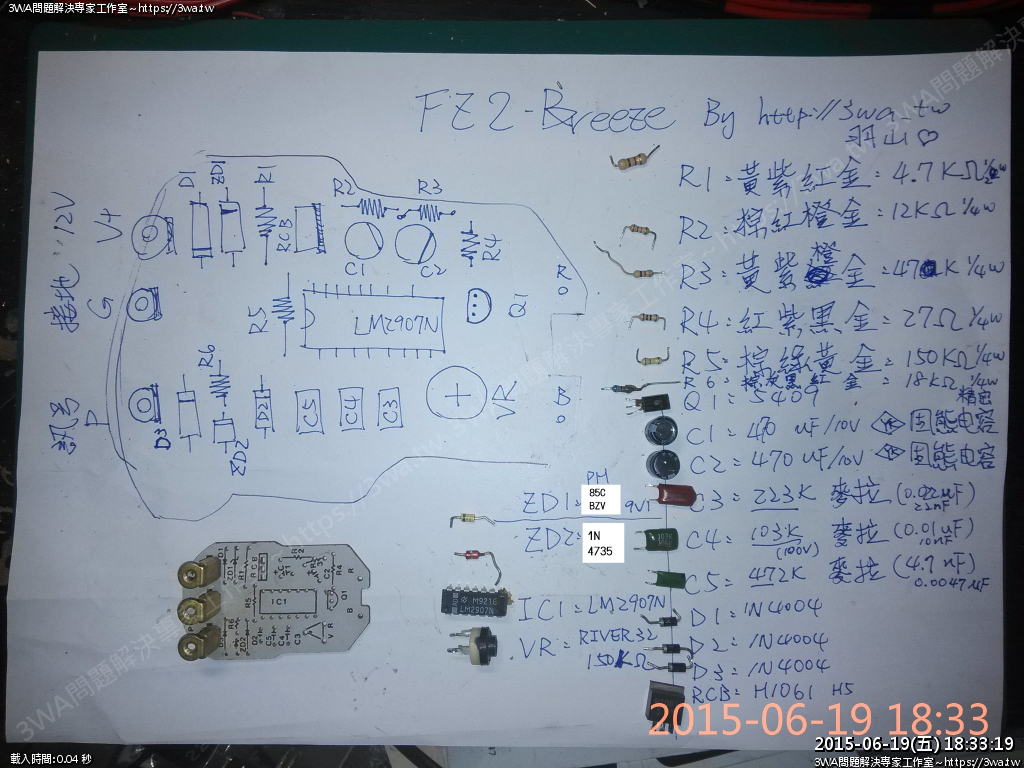 3WA問題解決專家工作室~https://3wa.tw
FZ2-Breeze By http://3wa.tw
羽山♡
R1=黃紫紅金=4.7KΩ 1/2w
R2=棕紅橙金=12KΩ 1/4w
R3=黃紫橙金=47K 1/4w
R4=紅紫黑金=27Ω 1/4w
R5=棕綠黃金=150KΩ 1/4w
R6=棕灰黑紅金=18KΩ 1/4w
精密
Q1=5409
C1=470 uF/10V 固態电容
C2=470uF/10V 固態电容
C3=223K 麥拉(0.022uF)
22nF
C4=103K 麥拉(0.01uF)
(100V) 10nF
C5=472K 麥拉(4.7nF)
0.0047uF
D1=1N4004
D2=1N4004
D3=1N4004
RCB=H1061 H5
PH
ZD1= 85C
BZV 9V1
ZD2= 1N
4735
IC1=LM2907N
VR=RIVER32
150KΩ
接地:12V
V+
G
訊号
P
D1
ZD1
R1
RCB
R2
R3
C1
C2
R4
R5
LM2907N
Q1
R
B
R6
D3
ZD2
D2
C5
C4
C3
VR
M921E
LM2907N
D1
ZD1
R1
RCB
R2
R3
C1
C2
R4
R5
IC1
Q1
R
B
R6
ZD2
D2
C5
C4
C3
VR
2015-06-19 18:33
2015-06-19(五) 18:33:19
載入時間:0.04 秒
3WA問題解決專家工作室~https://3wa.tw